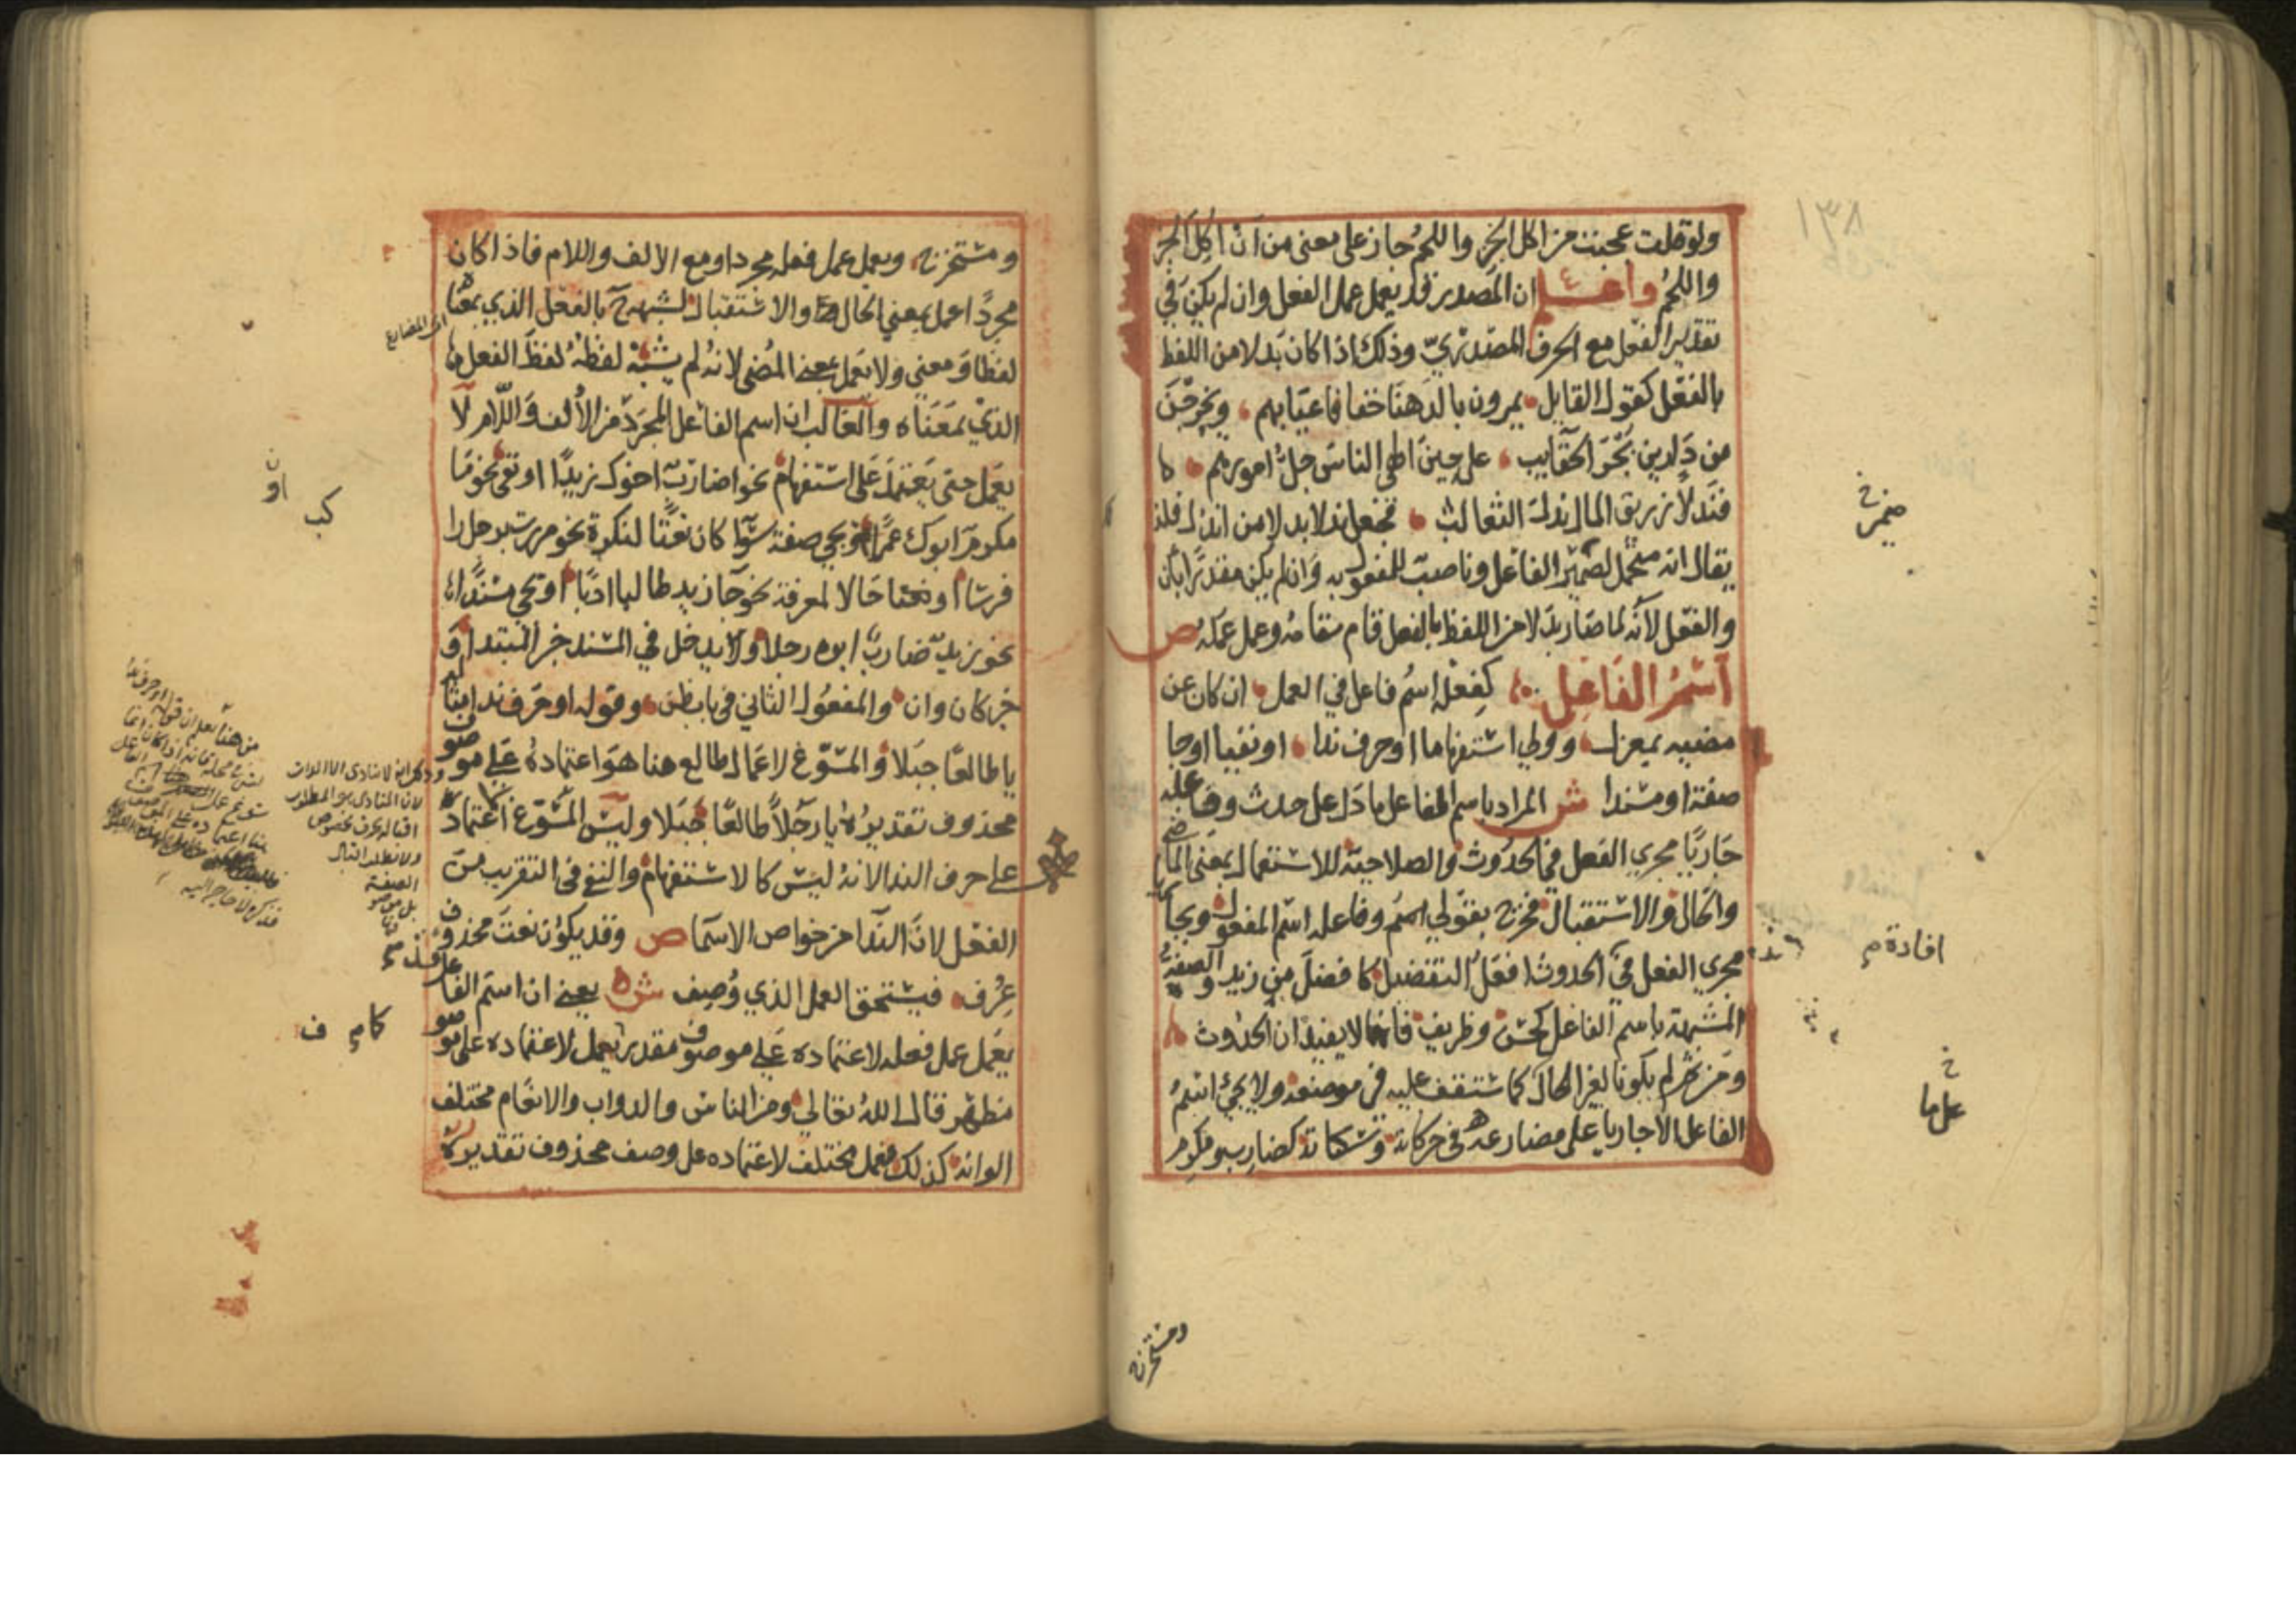 ولو قلت عجبت من اكل الخبز واللحمُ جاز على معنى من انْ اُكِلَ الخبز
واللحمُ واعلم ان المصدر قد يعمل عمل الفعل وان لم يكن في
تقدير الفعل مع الحرف المصدريّ وذلك اذا كان بدلا من اللفظ
بالفعل كقول القايل يمرون بالدهنا خفافا عيابهم ويخرجن
من دارين بجر الحقايب على حين الهى الناس جل امورهم
فندلا زريق المال ندل الثعالب فجعل ندلا بدلا من اندل فلذا
يقال انه متحمل لضمير الفاعل وناصب للمفعول به وان لم يكن مقدرا بان
والفعل لانه لما صار بدلا من اللفظ بالفعل قام مقامه وعمل عمله ص
اسم الفاعل كفعله اسم فاعل في العمل ان كان عن
مضيه بمعزل وولي استفهاما او حرف ندا او نفيا او جا
صفة او مسندا ش المراد باسم الفاعل ما دل على حدث وفاعله
جاريا مجري الفعل في الحدوث والصلاحية للاستعمال بمعنى الماضي
والحال والاستقبال فخرج بقولي وفاعله اسم المفعول وبجاريا
مجري الفعل في الحدوث افعل التفضيل كافضل من زيد والصفة
المشبهة باسم الفاعل كحسن وظريف فانها لا يفيدان الحدوث
ومن ثم لم يكونا لغير الحال كما ستقف عليه في موضعه ولا يجئ اسم
الفاعل الا جاريا على مضارعه في حركاته وسكناته كضارب ومكرم
ومستخرج
١٣٨
افادة م
علي ما
ومستخرج ويعمل عمل فعله مجردا ومع الالف واللام فاذا كان
مجردا عمل بمعنى الحال والاستقبال لشبهه بالفعل الذي بمعناه
لفظا ومعنى ولا يعمل بمعنى المضى لانه لم يشبه لفظه لفظ الفعل
الذي بمعناه والغالب ان اسم الفاعل المجرد من الالف واللام لا
يعمل حتى يعتمد على استفهام نحو اضارب اخوك زيدا او نفى نحو ما
مكرم ابوك عمرا او يجي صفة سوا كان نعتا لنكرة نحو مررت برجل راكب
فرسا او نعتا حالا لمعرفة نحو جا زيد طالبا ادبا او يجي مسندا
نحو زيد ضارب ابوه رجلا ويدخل في المسند خبر المبتدا و
خبر كان وان والمفعول الثاني في باب ظن وقوله او حرف ندا مثاله
يا طالعا جبلا والمسوغ لاعمال طالع هنا هو اعتماده على موصوف
محذوف تقديره يا رجلا طالعا جبلا وليس المسوغ اعتماده
على حرف الندا لانه ليس كالاستفهام والنفي في التقريب من
الفعل لان الندا من خواص الاسما ص وقد يكون نعت محذوف
عرف فيستحق العمل الذي وصف ش يعني ان اسم الفاعل
يعمل عمل فعله لاعتماده على موصوف مقدر يعمل لاعتماده على موصوف
مظهر قال الله تعالي ومن الناس والدواب والانعام مختلف
الوانه كذلك فعمل مختلف لاعتماده على وصف محذوف تقديره
اي المضارع